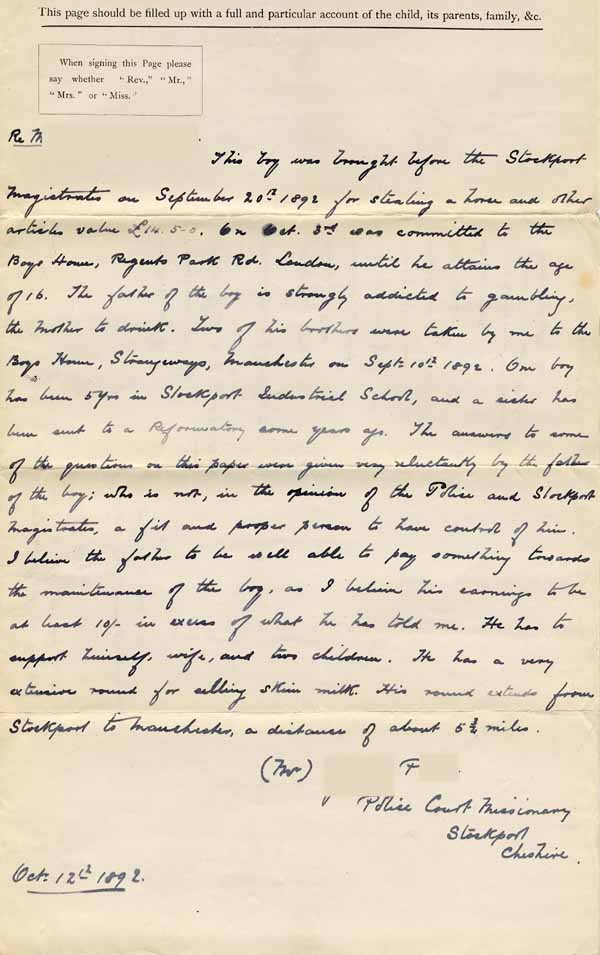 This page should be filled up with a full and particular account of the child, its parents, family, &c.
When signing this Page please
say whether "Rev.," "Mr.,"
"Mrs." or "Miss."
Re M
This boy was brought before the Stockport
Magistrates on September 20th 1892 for stealing a horse and other
articles value £14. 5-0. On Oct. 3rd was committed to the
Boys Home, Regents Park Rd. London, until he attains the age
of 16. The father of the boy is strongly addicted to gambling,
the Mother to drink. Two of his brothers were taken by me to the
Boys Home, Strangeways, Manchester on Sept. 10th 1892. One boy
has been 5 Yrs in Stockport Industrial School, and a sister has
been sent to a Reformatory some years ago. The answers to some
of the questions on this paper were given very reluctantly by the father
of the boy; who is not, in the opinion of the Police and Stockport
Magistrates, a fit and proper person to have control of him.
I believe the father to be well able to pay something towards
the maintenance of the boy, as I believe his earnings to be
at least 10/- in excess of what he has told me. He has to
support himself, wife, and two children. He has a very
extensive round for selling skim milk. His round extends from
Stockport to Manchester, a distance of about 5½ miles.
(Mr) F
Police Court Missionary
Stockport
Cheshire.
Oct. 12th 1892.